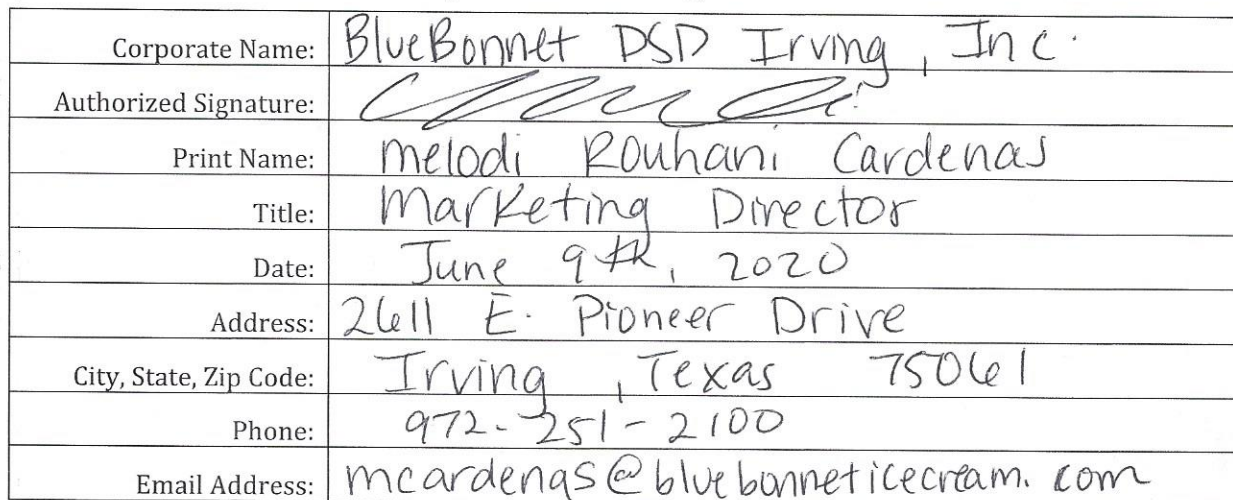 Corporate Name: BlueBonnet DSD Irving, Inc.
Authorized Signature:
Print Name: Melodi Rouhani Cardenas
Title: Marketing Director
Date: June 9th, 2020
Address: 2611 E. Pioneer Drive
City, State, Zip Code: Irving, Texas 75061
Phone: 972-251-2100
Email Address: mcardenas@bluebonneticecream.com